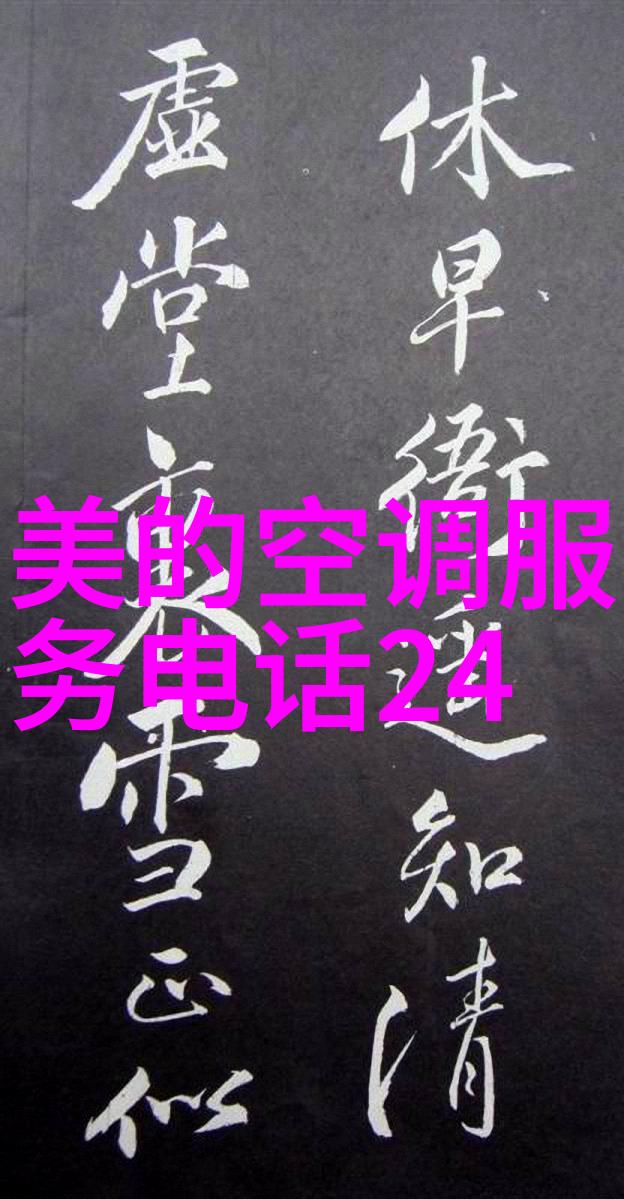 休早衙遙知清
虚堂裏雪正似
美的空调服
务电话24